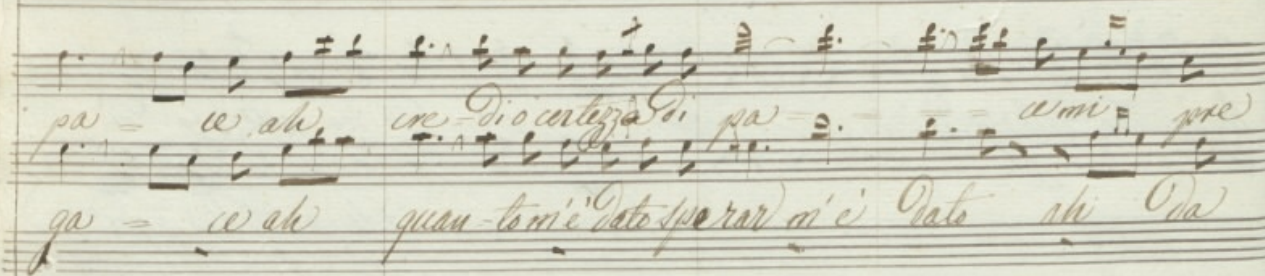 pa = ce ah cre-dio certezza di pa - - - - ce mi pre
ga = ce ah quan-to m'è dato sperar m'è dato ah da